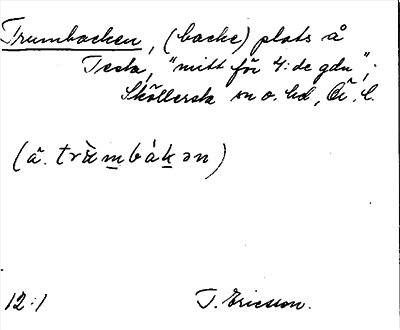 Trumbacken, (backe) plats å
Testa, "mitt för 4:de gdn";
Sköllersta sn o. hd, Ör. l.
(ã. trѐ̀mbákən)
12:1 T. Ericsson.